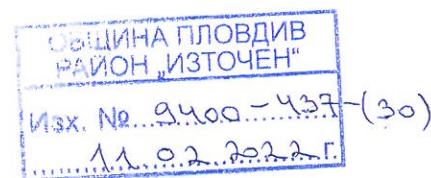 ОБЩИНА ПЛОВДИВ
РАЙОН „ИЗТОЧЕН“
Изх. № 9400-437-(30)
11.02.2022 г.